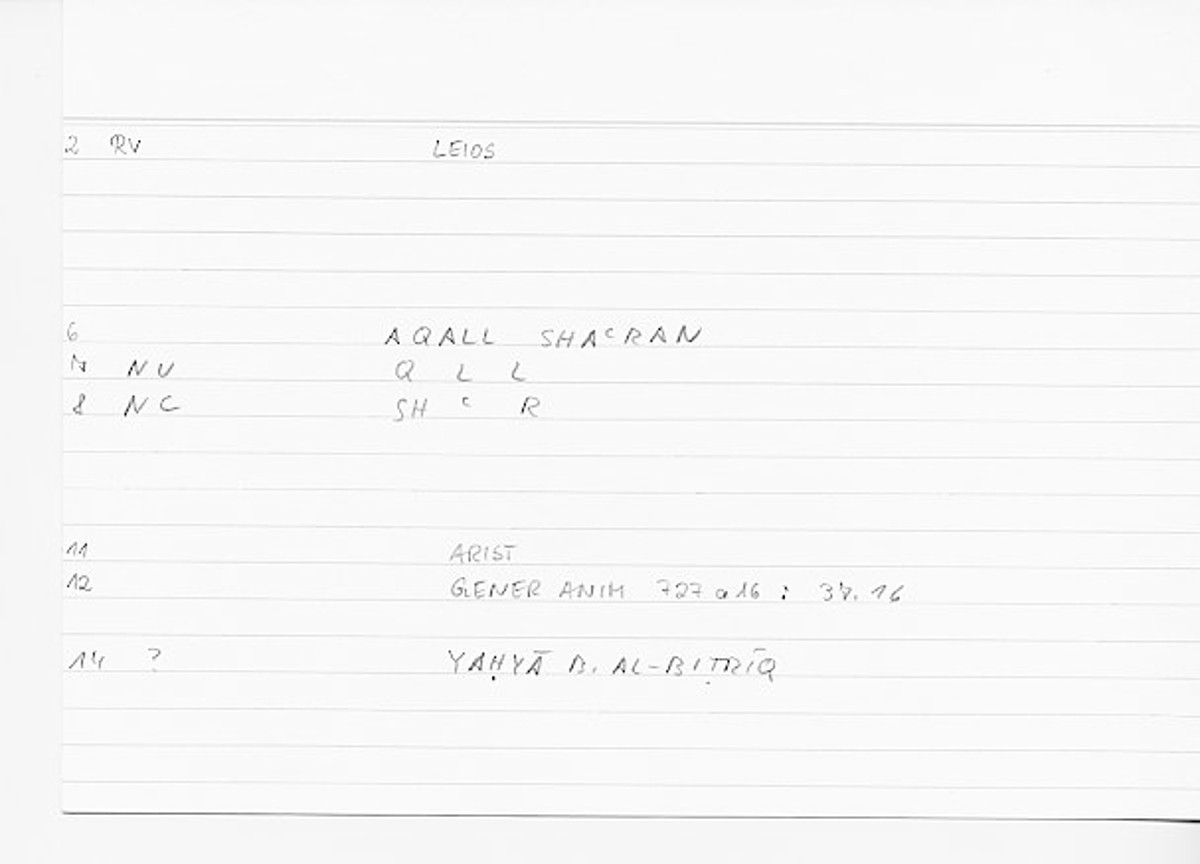 2 RV LEIOS
6 AQALL SHAᶜRAN
7 NU Q L L
8 NC SH ᶜ R
11 ARIST
12 GENER ANIM 727 a 16 : 37. 16
14 ? YAḤYĀ B. AL-BIṬRĪQ